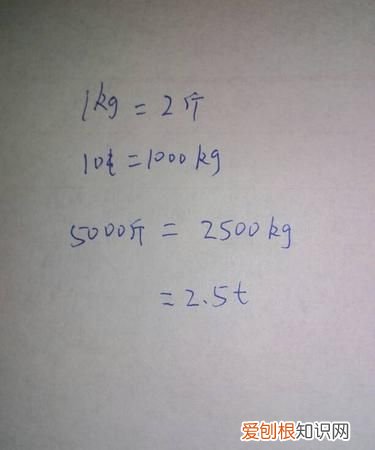 1kg = 2斤
10t = 1000kg
5000斤 = 2500kg
= 2.5t
爱刨根知识网